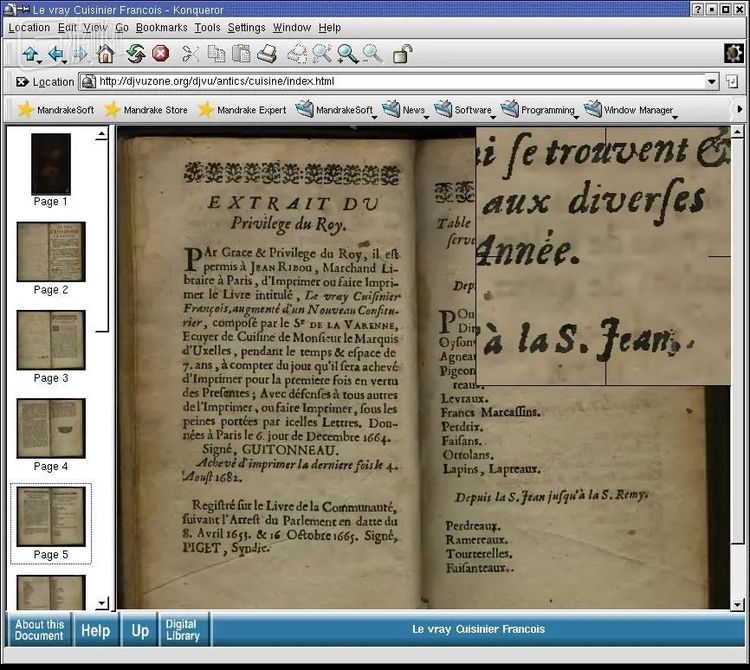 Le vray Cuisinier Francois - Konqueror
Location Edit View Go Bookmarks Tools Settings Window Help
Location http://djvuzone.org/djvu/antics/cuisine/index.html
MandrakeSoft Mandrake Store Mandrake Expert MandrakeSoft News Software Programming Window Manager
Page 1
Page 2
Page 3
Page 4
Page 5
EXTRAIT DU
Privilege du Roy.
PAr Grace & Privilege du Roy, il est
permis à JEAN RIBOU, Marchand Li-
braire à Paris, d'Imprimer ou faire Impri-
mer le Livre intitulé, Le vray Cuiſinier
François, augmenté d'un Nouveau Confitu-
rier, composé par le Sr DE LA VARENNE,
Ecuyer de Cuiſine de Monſieur le Marquis
d'Uxelles, pendant le temps & eſpace de
7. ans, à compter du jour qu'il ſera achevé
d'Imprimer pour la premiere fois en vertu
des Preſentes; Avec défenſes à tous autres
de l'Imprimer, ou faire Imprimer, ſous les
peines portées par icelles Lettres. Don-
nées à Paris le 6. jour de Decembre 1664.
Signé, GUITONNEAU.
Achevé d'imprimer la derniere fois le 4.
Aouſt 1682.
Regiſtré ſur le Livre de la Communauté,
ſuivant l'Arreſt du Parlement en datte du
8. Avril 1653. & 16 Octobre 1665. Signé,
PIGET, Syndic.
Table
ſerve
Dep
POu
Din
Oyſon
Agneau
Pigeon
reaux
Levraux.
Francs Marcaſſins.
Perdrix.
Faiſans.
Ortolans.
Lapins, Lapreaux.
Depuis la S. Jean juſqu'à la S. Remy.
Perdreaux.
Ramereaux.
Tourterelles.
Faiſanteaux.
i ſe trouvent &
aux diverſes
Année.
à la S. Jean.
About this Document
Help
Up
Digital Library
Le vray Cuisinier Francois